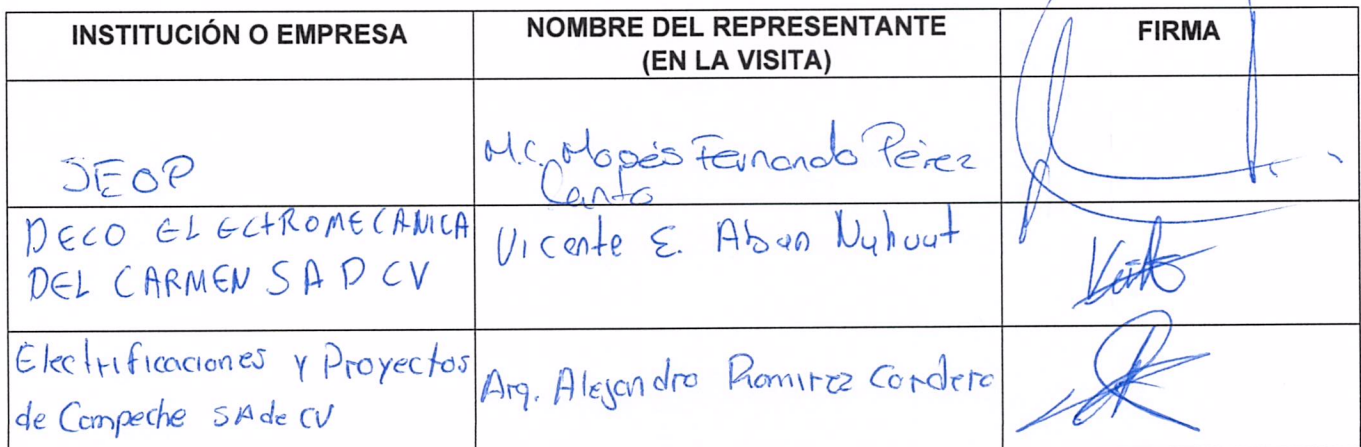 INSTITUCIÓN O EMPRESA
NOMBRE DEL REPRESENTANTE
(EN LA VISITA)
FIRMA
SEOP
M.C. Moisés Fernando Pérez
Canto
DECO ELECTROMECANICA
DEL CARMEN S A D CV
Vicente E. Aban Nuhuut
Electrificaciones y Proyectos
de Campeche SA de CV
Arq. Alejandro Ramirez Cordero